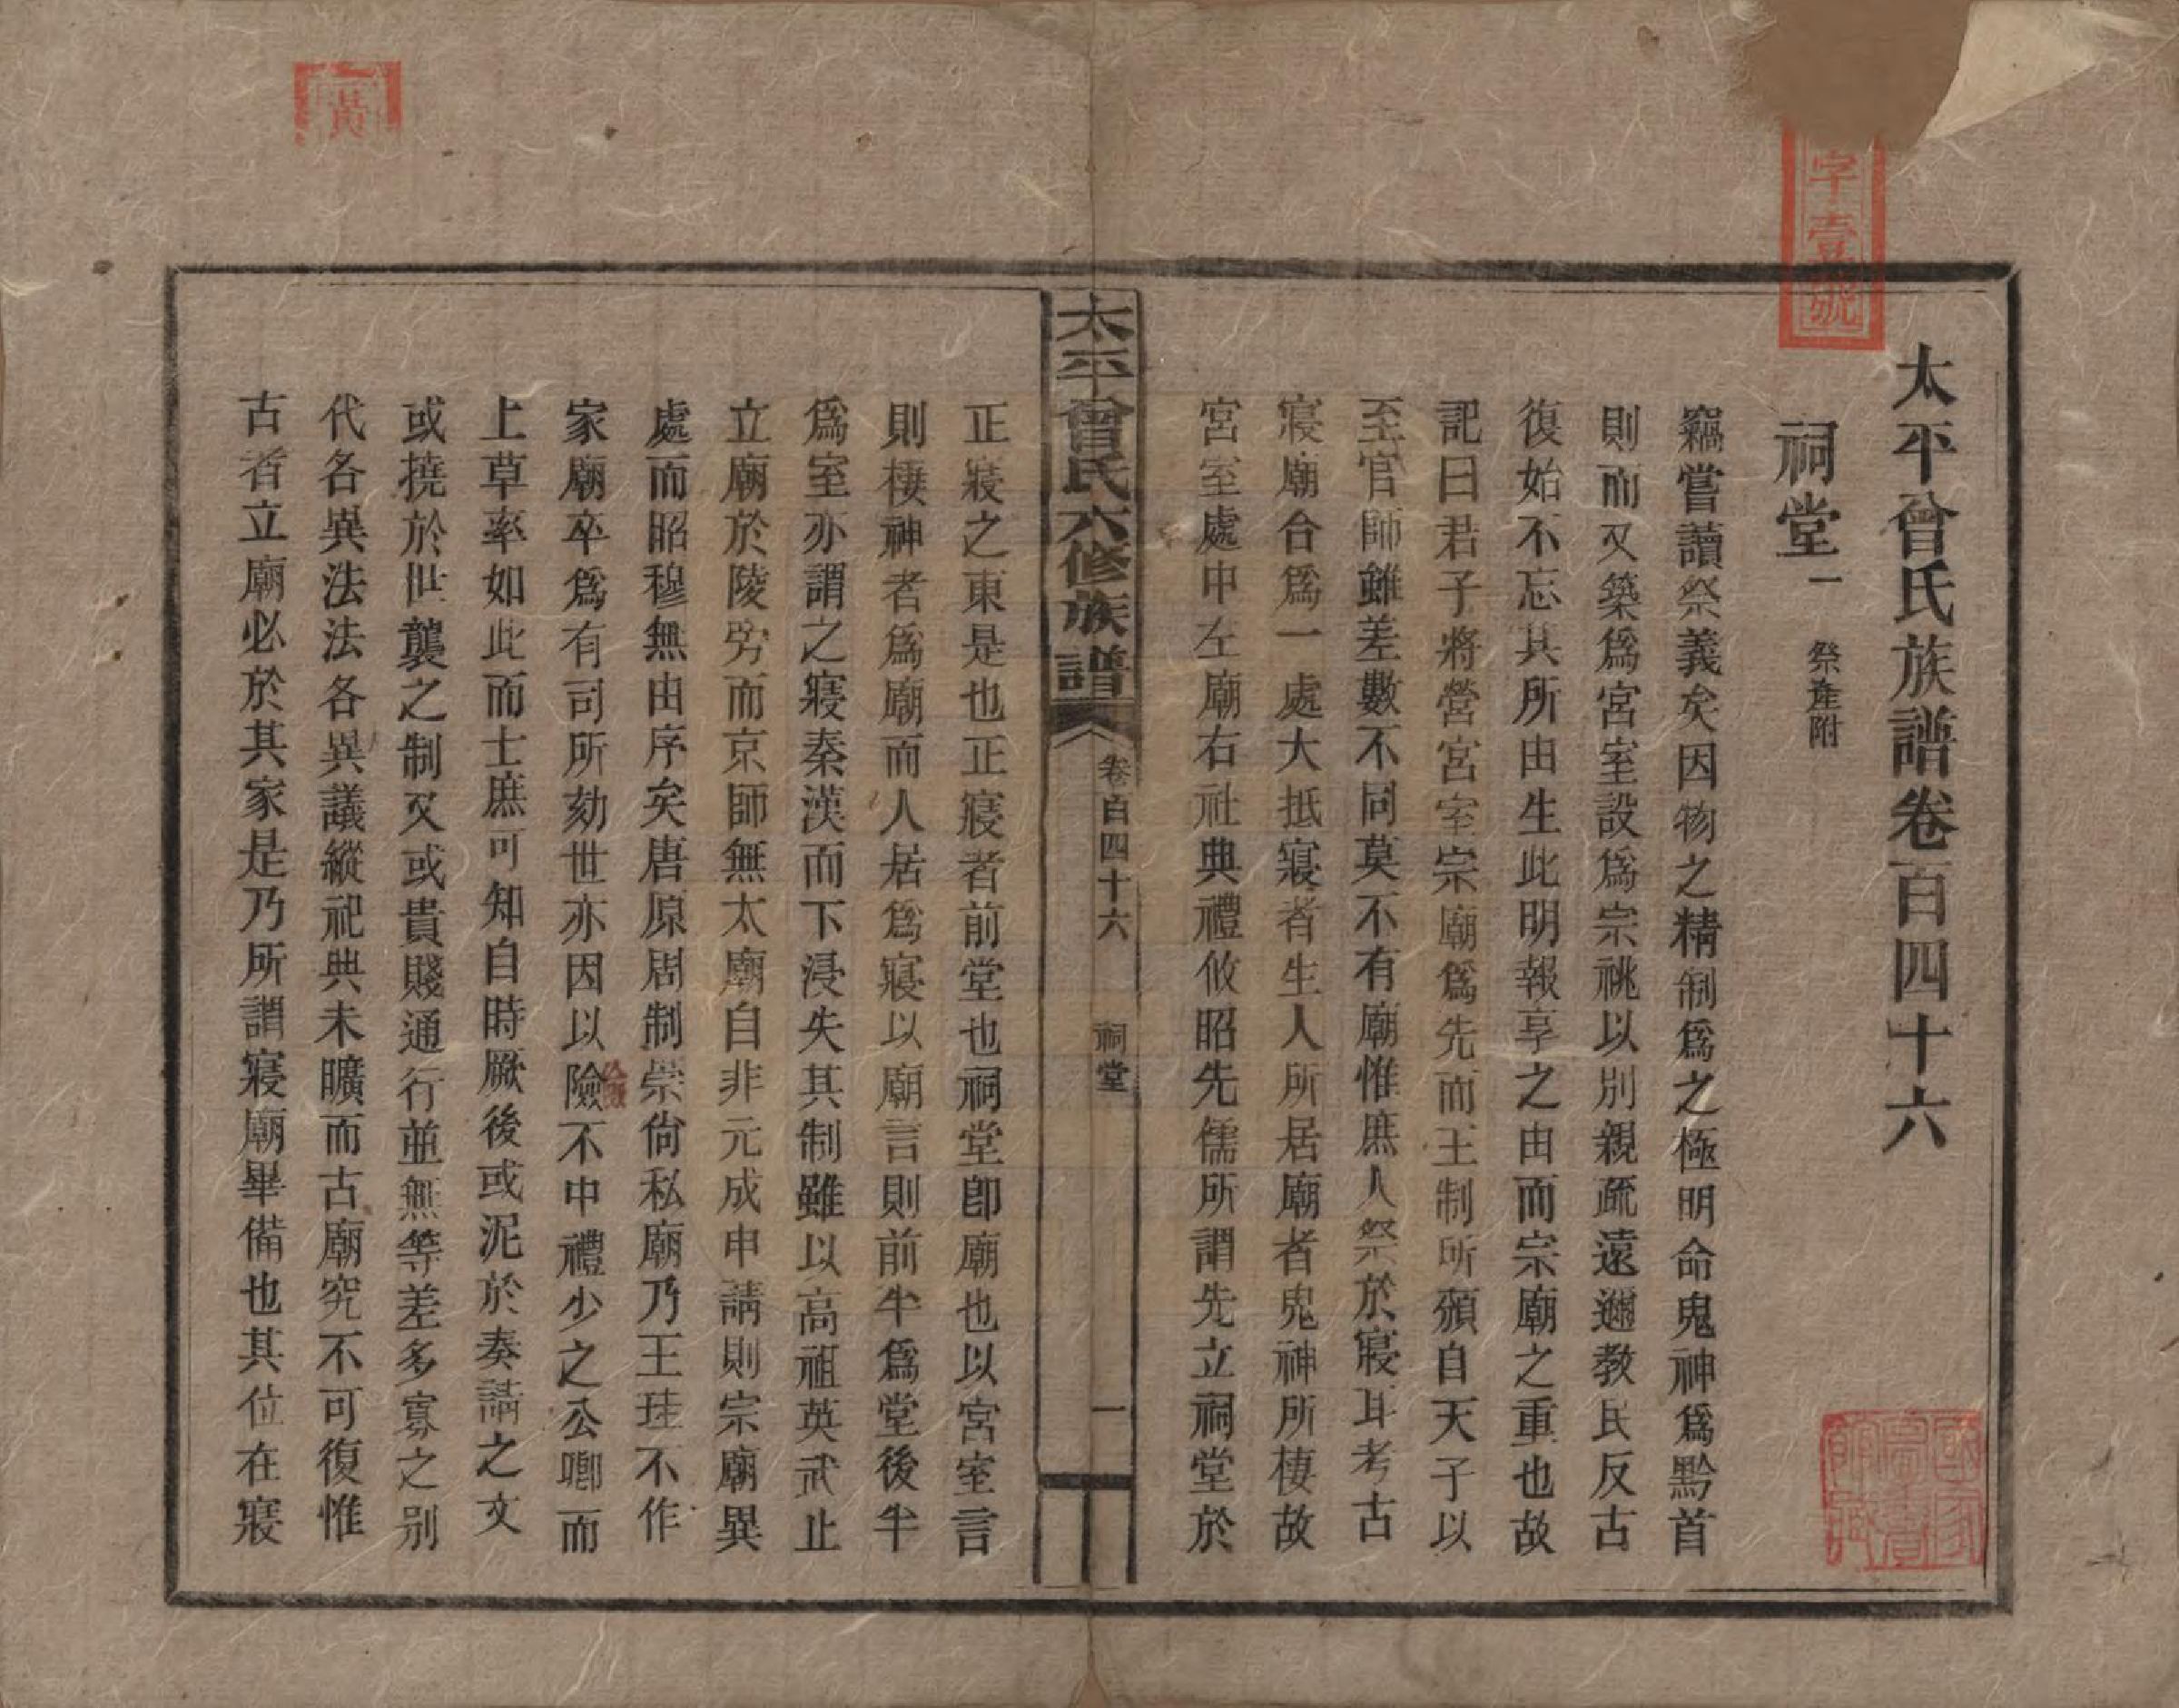 太平曾氏族譜卷百四十六
祠堂一 祭產附
竊嘗讀祭義矣因物之精制爲之極明命鬼神爲黔首
則而又築爲宮室設爲宗祧以別親疏遠邇教民反古
復始不忘其所由生此明報享之由而宗廟之重也故
記曰君子將營宮室宗廟爲先而王制所頒自天子以
至官師雖差數不同莫不有廟惟庶人祭於寢耳考古
寢廟合爲一處大抵寢者生人所居廟者鬼神所棲故
宮室處中左廟右社典禮攸昭先儒所謂先立祠堂於
太平曾氏六修族譜
卷百四十六
祠堂
一
正寢之東是也正寢者前堂也祠堂卽廟也以宮室言
則棲神者爲廟而人居爲寢以廟言則前半爲堂後半
爲室亦謂之寢秦漢而下浸失其制雖以高祖英武止
立廟於陵旁而京師無太廟自非元成申請則宗廟異
處而昭穆無由序矣唐原周制崇尙私廟乃王珪不作
家廟卒爲有司所劾世亦因以險不中禮少之公卿而
上草率如此而士庶可知自時厥後或泥於奏請之文
或撓於世襲之制又或貴賤通行並無等差多寡之別
代各異法法各異議縱祀典未曠而古廟究不可復惟
古者立廟必於其家是乃所謂寢廟畢備也其位在寢
黃
字壹號
國家圖書館藏